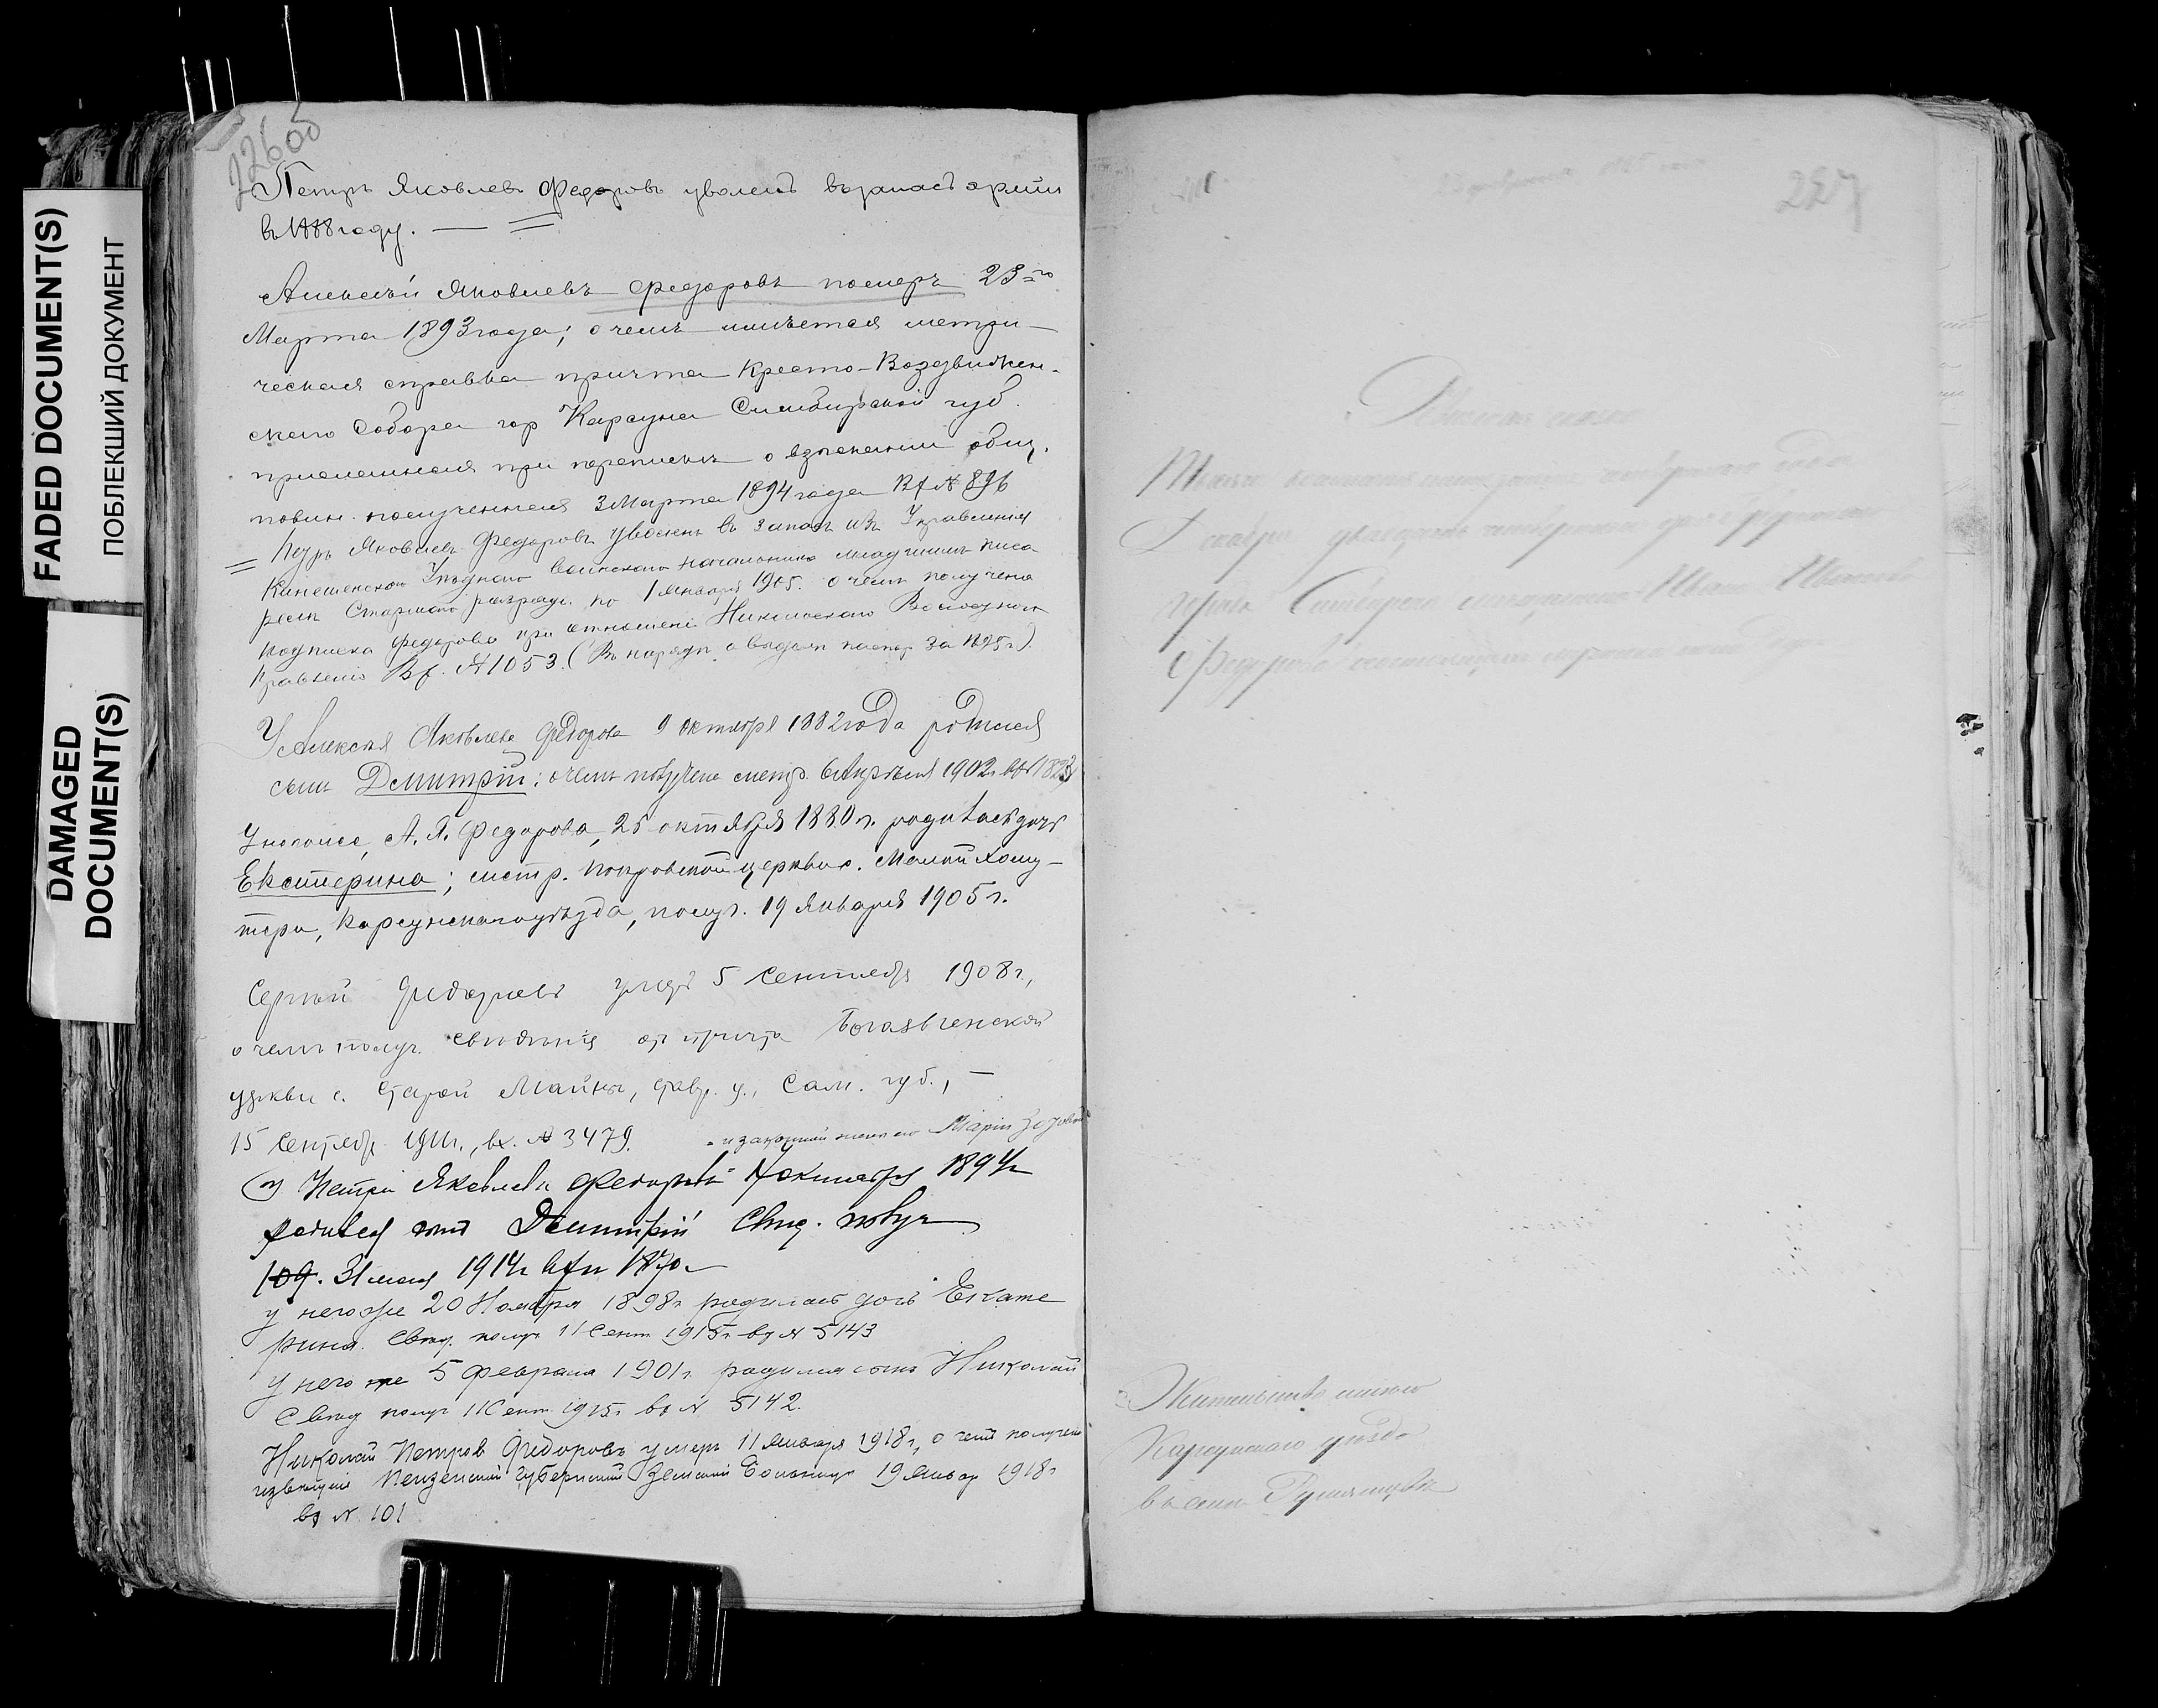 FADED DOCUMENT(S)
ПОБЛЕКШИЙ ДОКУМЕНТ
DAMAGED
DOCUMENT(S)
226об
Петръ Яковлевъ Федоровъ уволенъ въ запасъ армiи
въ 1888 году. —
Алексѣй Яковлевъ Федоровъ померъ 23го
Марта 1893 года; о чемъ имѣется метри-
ческая справка причта Кресто-Воздвижен-
скаго Собора гор Карсуна Симбирской губ.
присланная при переписке о взыскании общ.
повин. полученная 3 Марта 1894 года Вх № 896
= Петръ Яковлевъ Федоровъ уволенъ въ запасъ изъ Управленiя
Кинешемскаго Уѣзднаго Воинскаго Начальника младшимъ писа-
ремъ Старшаго разряда по 1 января 1905. о чемъ получена
подписка Федорова при отношенiи Никольскаго Волостного
Правленiя Вх. № 1053. (Въ нарядѣ о выдачѣ паспор. за
У Алексѣя Яковлева Федорова 9 октября 1882 года родился
сынъ Дмитрiй; о чемъ получена метр. 6 Апрѣля 1902 г. вх
У него же, А. Я. Федорова, 25 октября 1880 г. родилась дочь
Екатерина; метр. Покровской церкви с. Малой Хому-
тери, Карсунскаго уѣзда, получ. 19 Января 1905 г.
Сергѣй Федоровъ умеръ 5 Сентября 1908 г.,
о чемъ получ. свѣдѣнiя отъ причта Богоявленской
церкви с. Старой Майны, Ставр. у., Сам. губ., —
15 Сентября 1911 г., вх. № 3479.
и законной жены его Марiи
У Петра Яковлева Федорова 4 октября 1894 г
родился сынъ Дмитрiй Свид. получ
109. 31 мая 1914 г вх № 1870
у него же 20 Ноября 1898 г родилась дочь Екате
рина. Свид. получ 11 Сент 1915 г вх № 5143
У него же 5 февраля 1901 г. родился сынъ Николай
Свид получ 11 Сент. 1915 г вх № 5142.
Николай Петровъ Федоровъ умеръ 11 января 1918 г, о чемъ получено
извещенiе Пензенской Губернской Земской Больницы 19 январ 1918 г
вх № 101
227
Ревизская сказка
Тысяча восемьсот
Декабря двадцать
города мещанина Ивана
Федорова
Жительство имеютъ
Карсунскаго уѣзда
въ селе Румянцевѣ